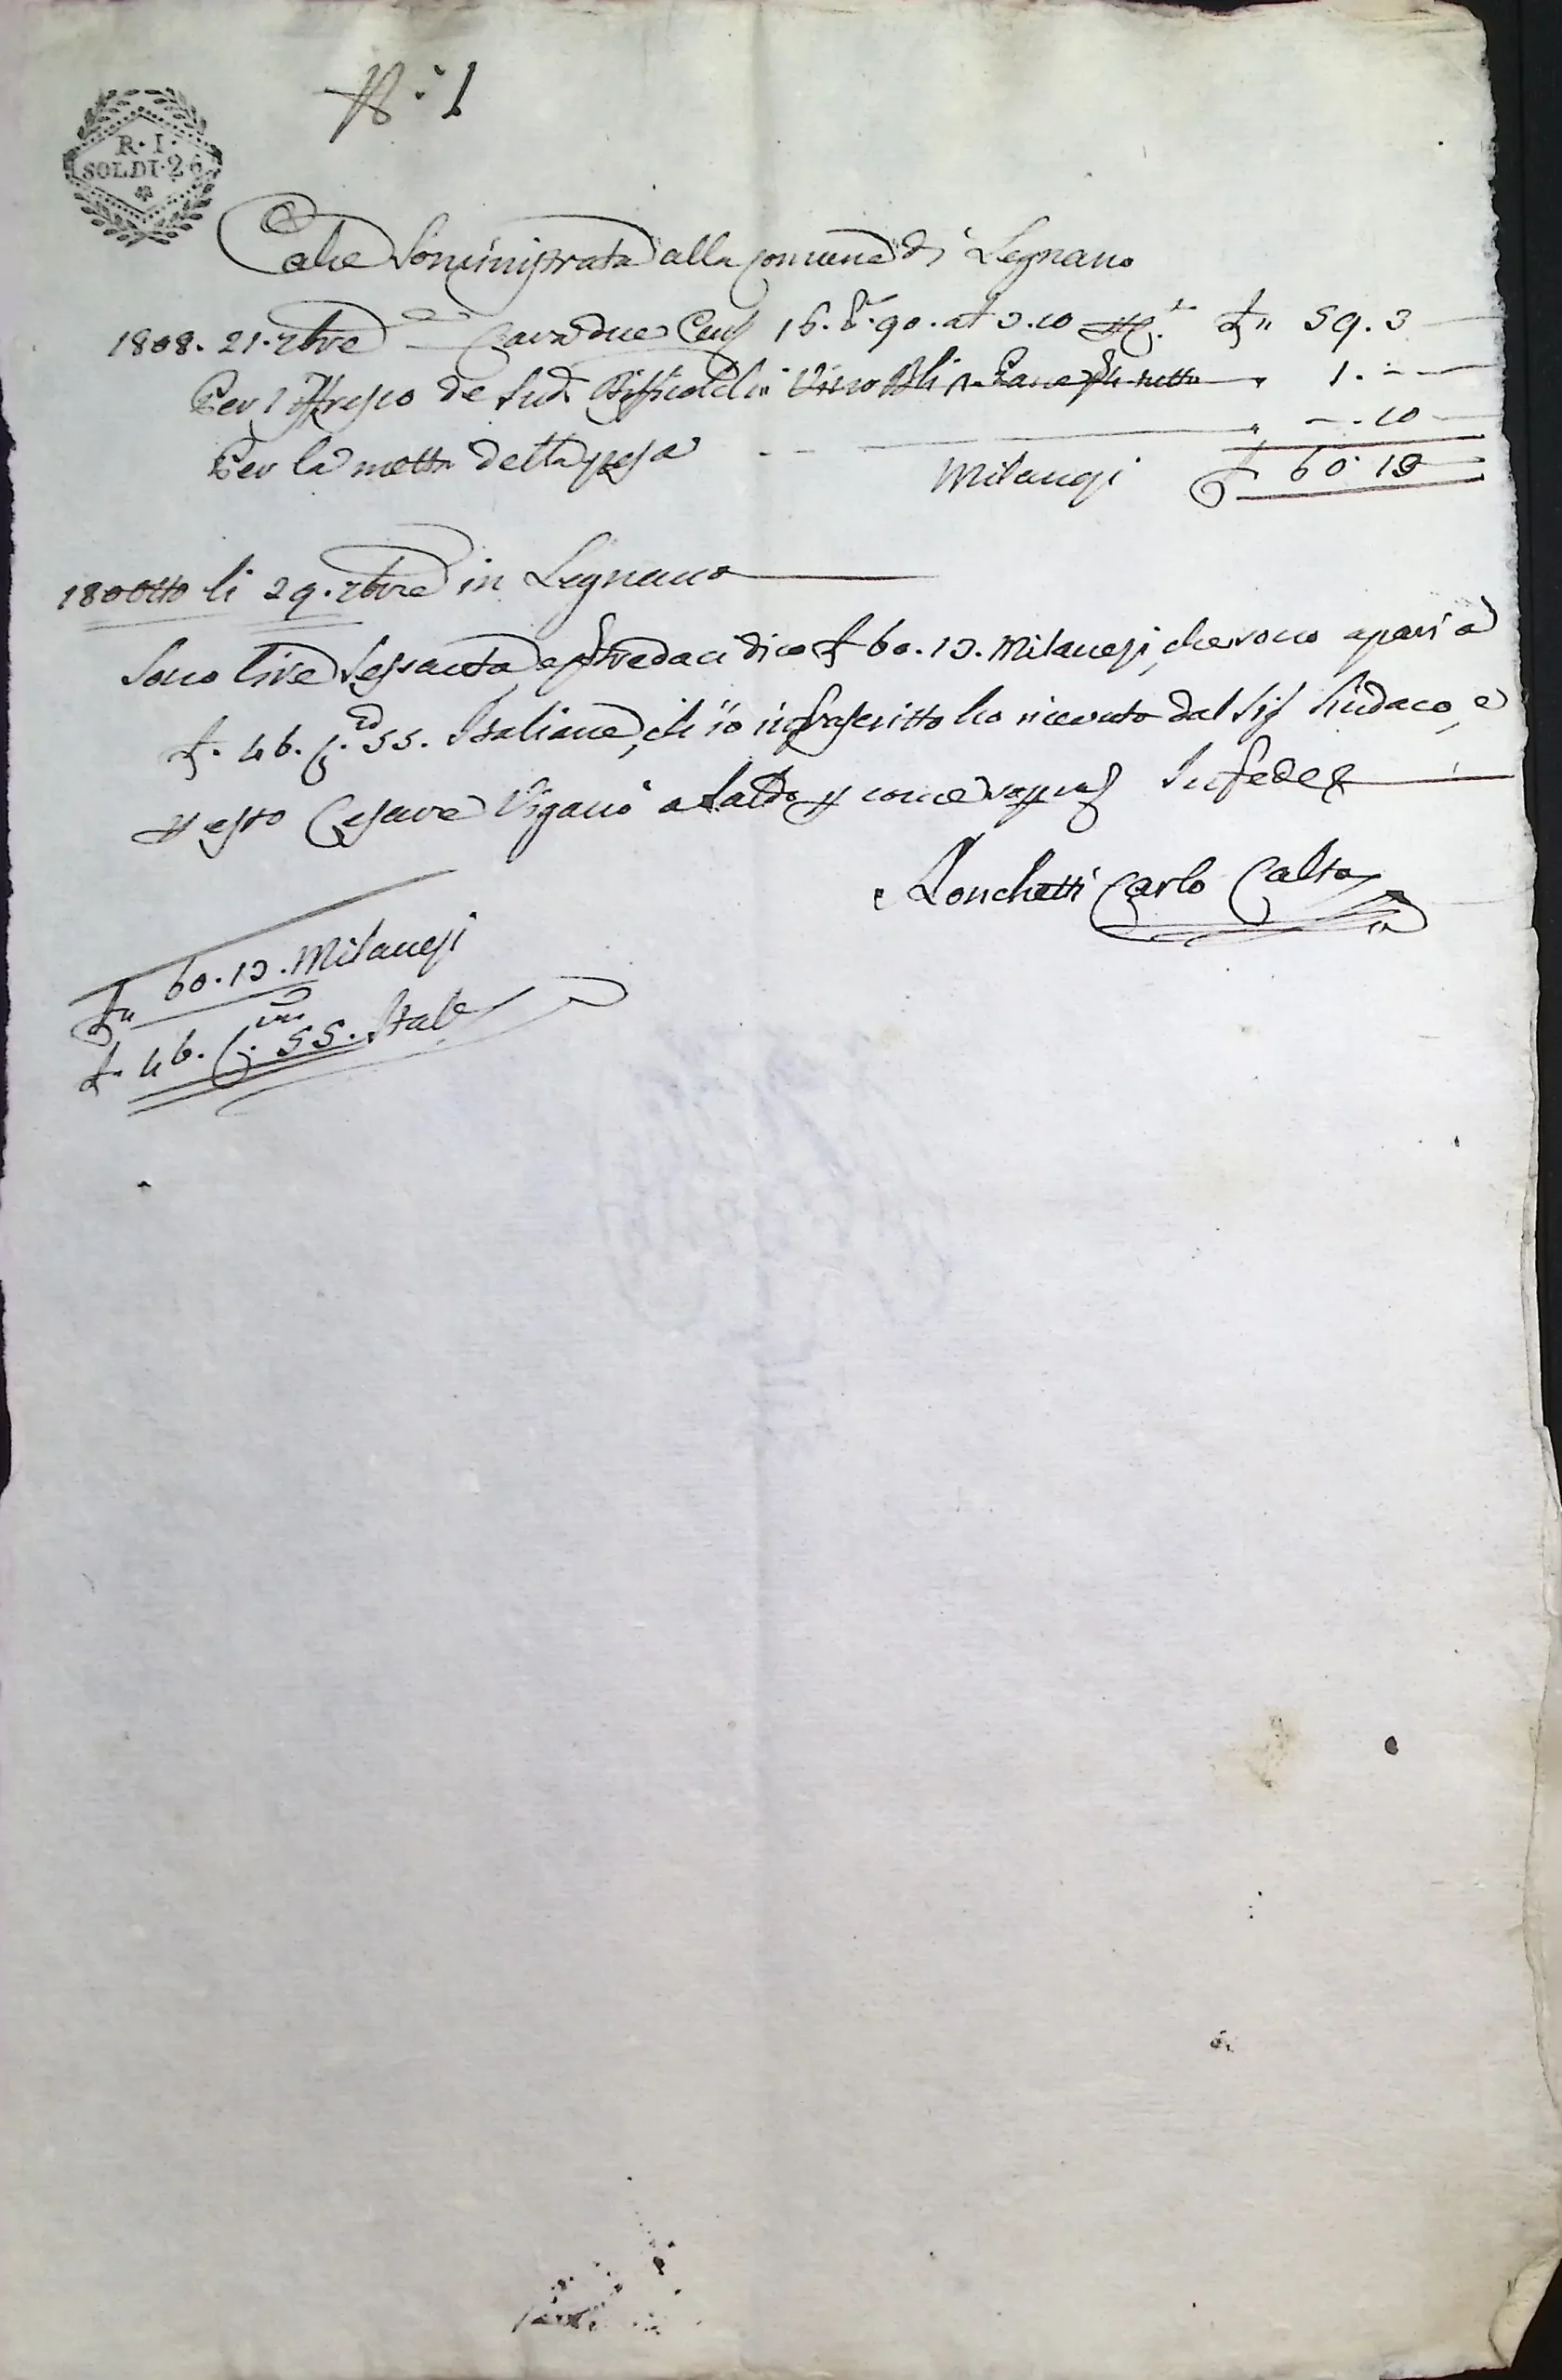 N.° 1
R. I.
SOLDI. 26
Calce Somministrata alla Comune di Legnano
1808. 21. 7bre Cara due Cent 16. 90. at 3.10 £ 59. 3
Per l de Sud. in Vino 1. -
Per la metta della pesa -. 10
Milanesi £ 60. 13
180otto li 29. 7bre in Legnano
Sono Lire Sessanta e tredaci dico £ 60. 13. Milanesi, che sono apari a
£. 46. C. 55. Italiane, che io infrascritto ho ricevuto dal Sig Sindaco, e
questo Cesare Viganò a Saldo come sopra In fede
Ronchetti Carlo
£ 60. 13. Milanesi
£. 46. C.mi 55. Itale